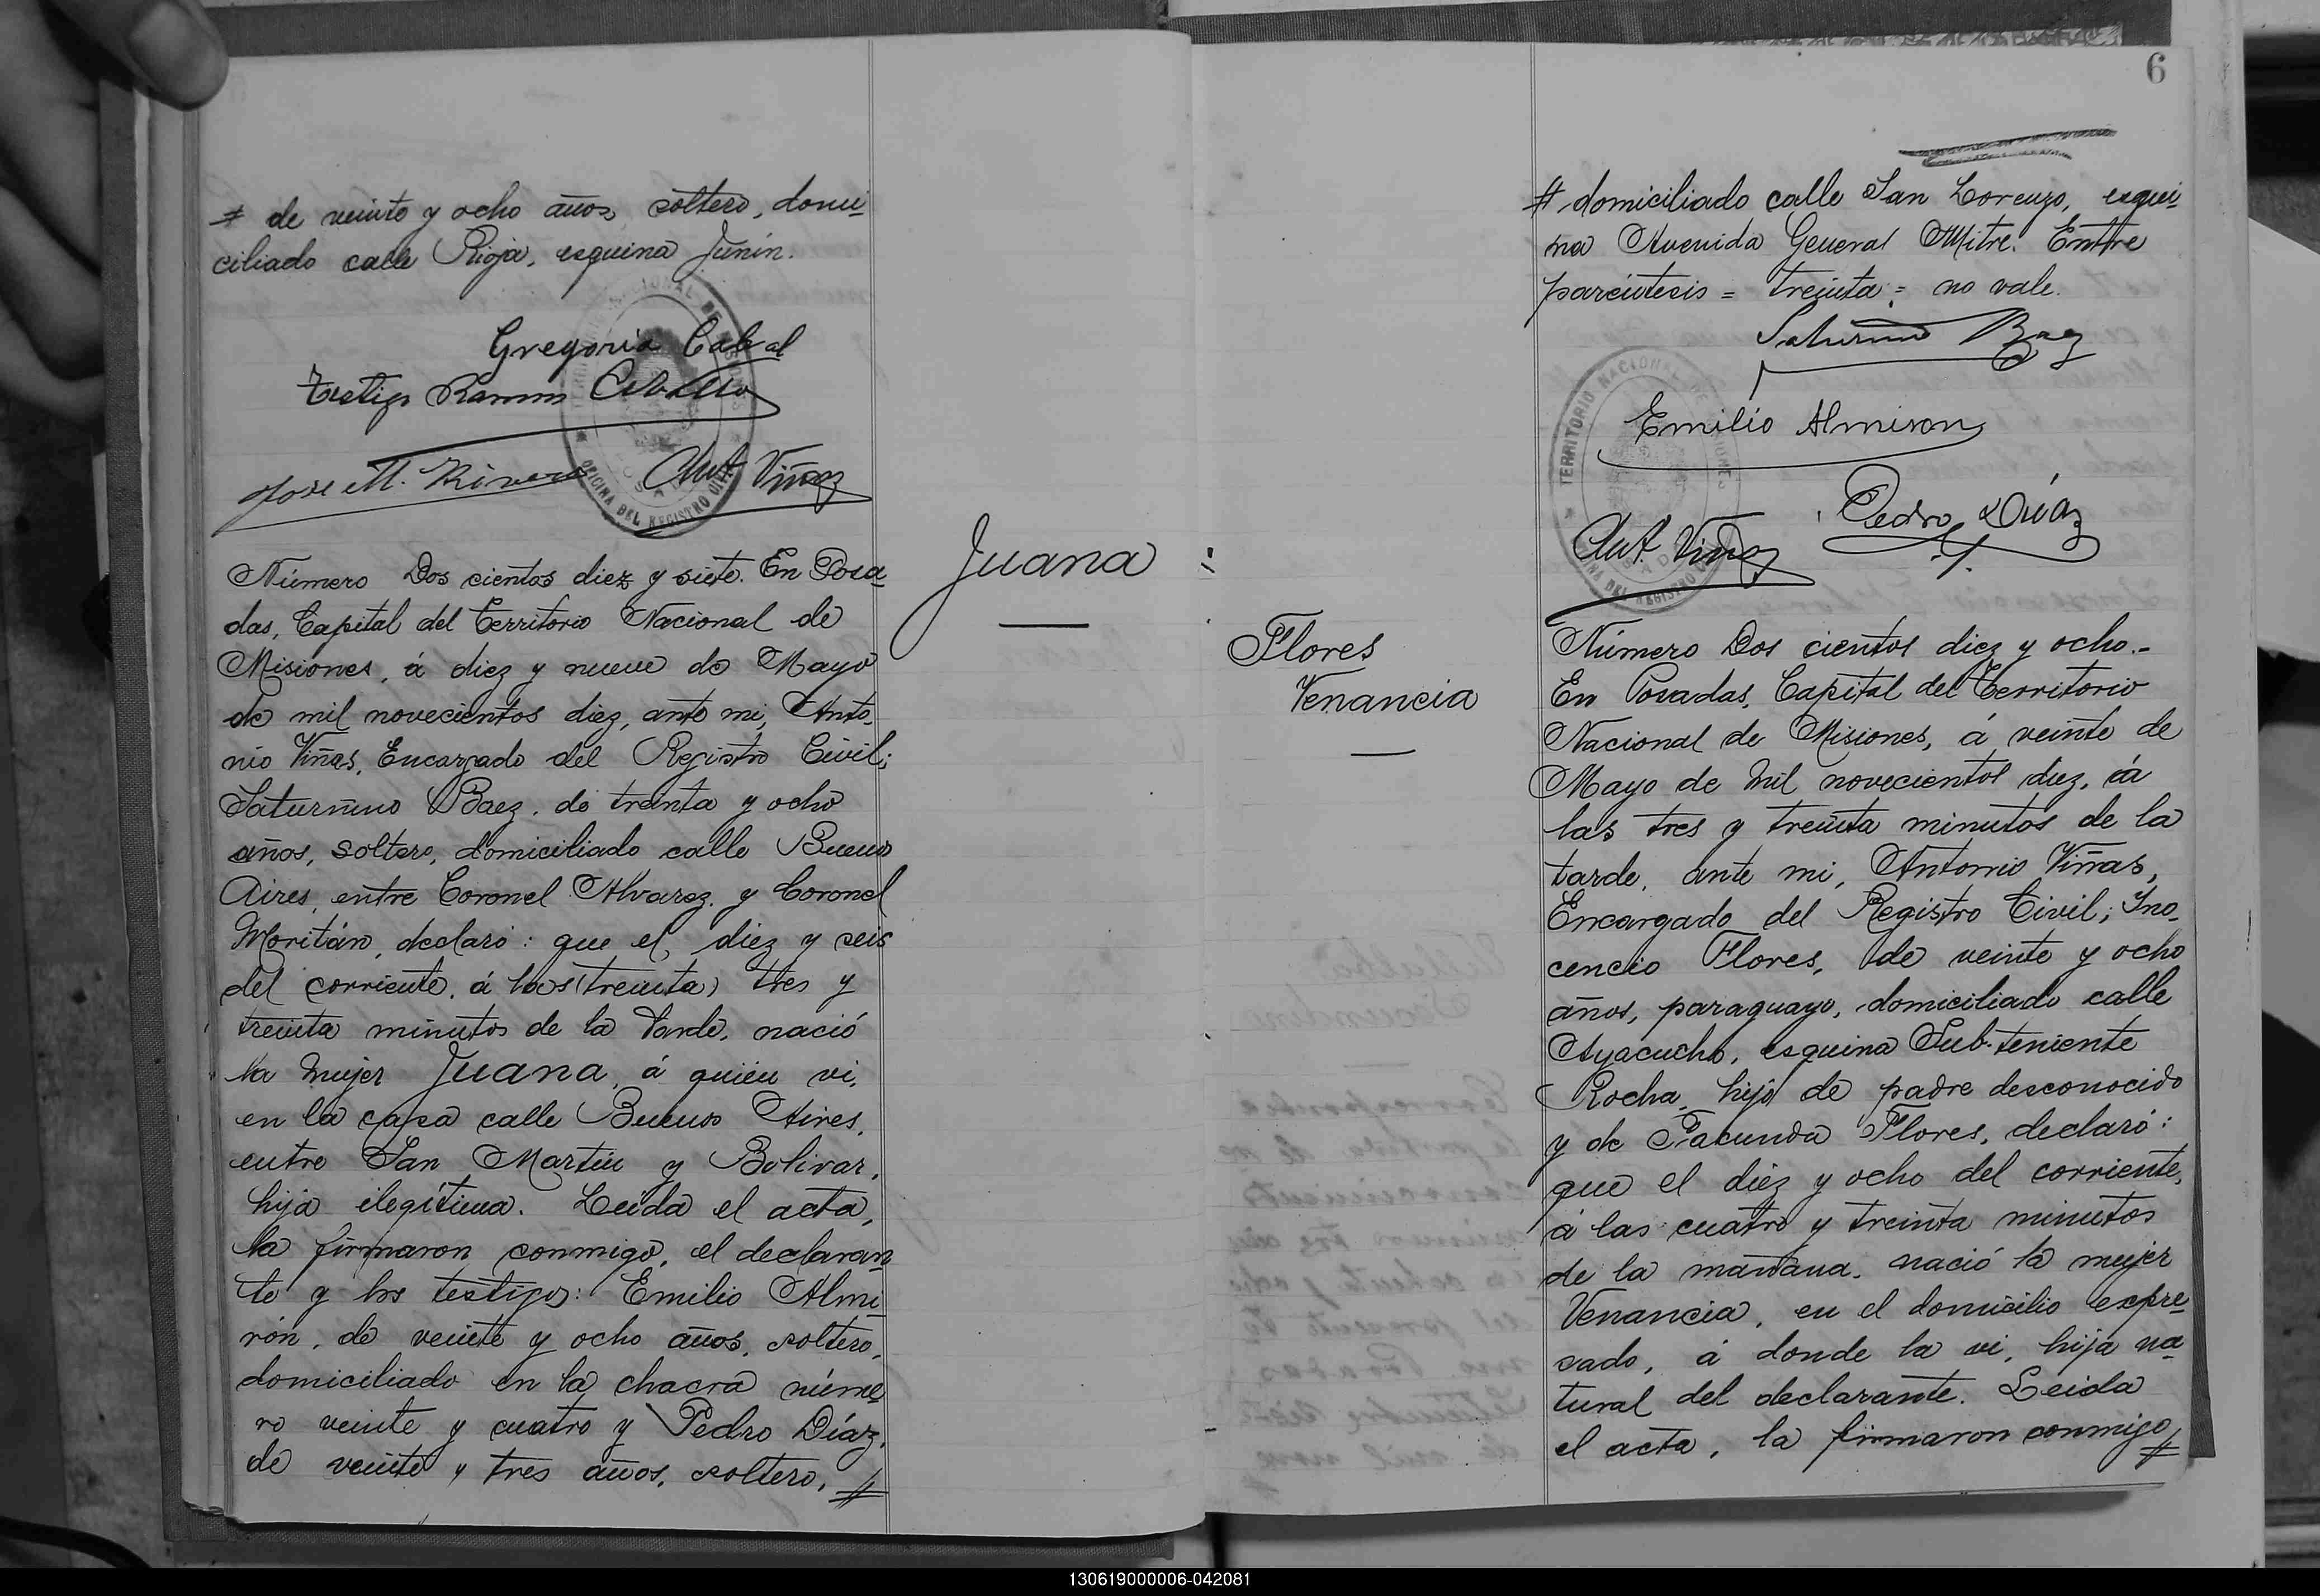 # de veinte y ocho años, soltero, domi-
ciliado calle Rioja, esquina Junín.
Gregorio Cabral
Testigo Ramon
Jose M. Rivero Ant. Viñas
Número Dos cientos diez y siete. En Posa-
das, Capital del Territorio Nacional de
Misiones, á diez y nueve de Mayo
de mil novecientos diez, ante mi, Anto-
nio Viñas, Encargado del Registro Civil;
Saturnino Baez, de treinta y ocho
años, soltero, domiciliado calle Buenos
Aires, entre Coronel Alvarez y Coronel
Moritán, declaró: que el diez y seis
del corriente, á las (treinta) tres y
treinta minutos de la tarde, nació
la mujer Juana, á quien vi,
en la casa calle Buenos Aires,
entre San Martín y Bolivar,
hija ilegítima. Leida el acta,
la firmaron conmigo, el declaran-
te y los testigos: Emilio Almi-
rón, de veinte y ocho años, soltero,
domiciliado en la chacra núme-
ro veinte y cuatro y Pedro Díaz,
de veinte y tres años, soltero, #
Juana
6
# domiciliado calle San Lorenzo, esqui-
na Avenida General Mitre. Entre
paréntesis = treinta = no vale.
Saturnino Baez
TERRITORIO NACIONAL DE MISIONES
Emilio Almiron
Pedro Díaz
Ant. Viñas
OFICINA DEL REGISTRO CIVIL
Flores
Venancia
Número Dos cientos diez y ocho.-
En Posadas, Capital del Territorio
Nacional de Misiones, á veinte de
Mayo de mil novecientos diez, á
las tres y treinta minutos de la
tarde, ante mi, Antonio Viñas,
Encargado del Registro Civil; Ino-
cencio Flores, de veinte y ocho
años, paraguayo, domiciliado calle
Ayacucho, esquina Sub-teniente
Rocha, hijo de padre desconocido
y de Facunda Flores, declaró:
que el diez y ocho del corriente,
á las cuatro y treinta minutos
de la mañana, nació la mujer
Venancia, en el domicilio expre-
sado, á donde la vi, hija na-
tural del declarante. Leida
el acta, la firmaron conmigo #
130619000006-042081